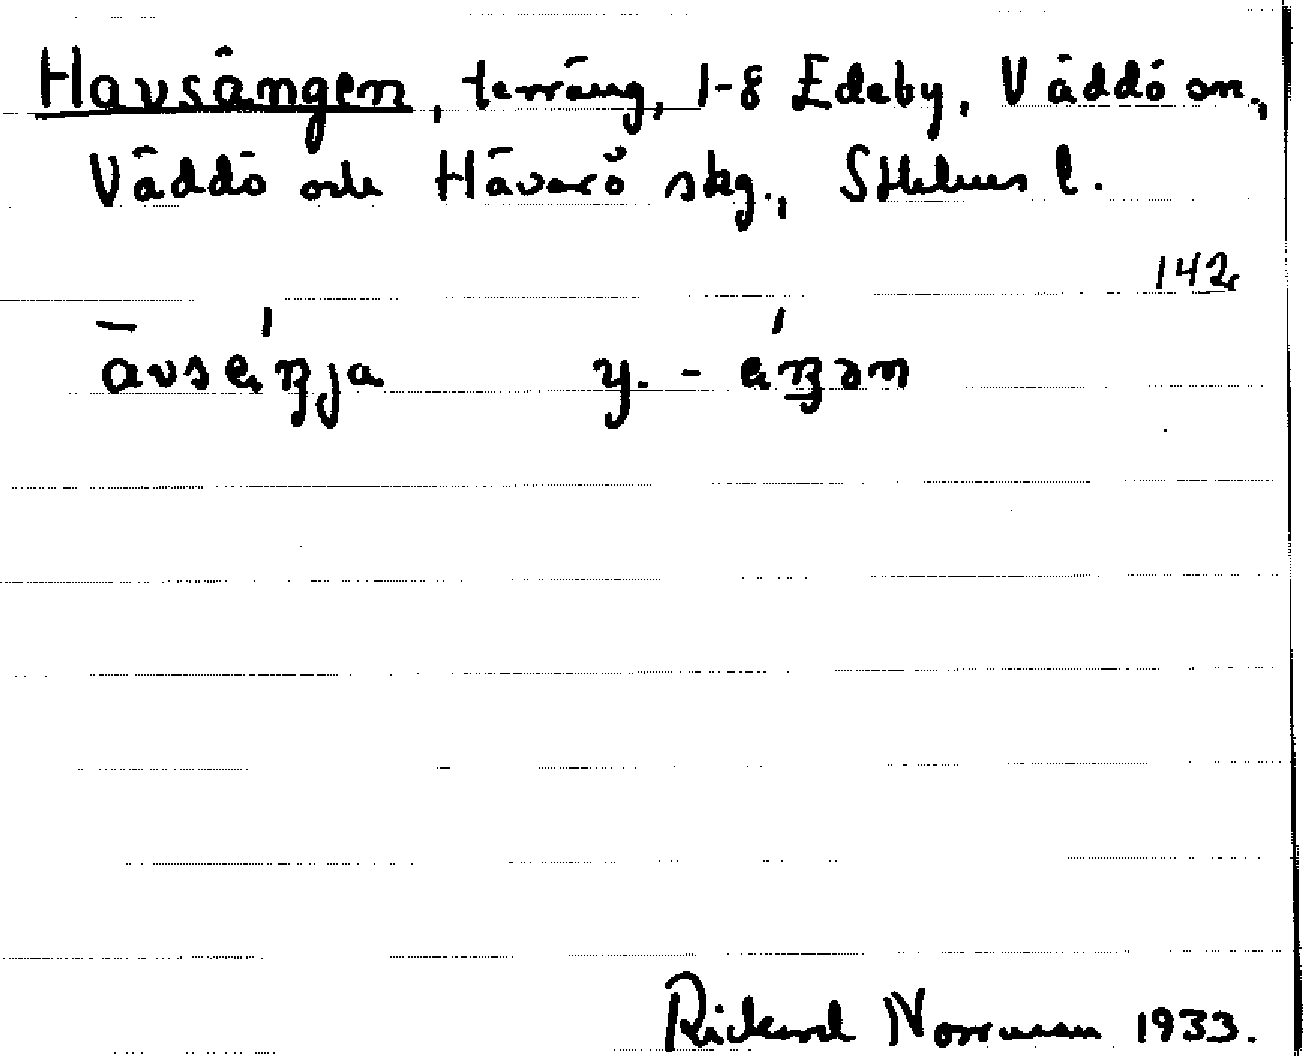 Havsängen, terräng, 1-8 Edeby, Väddö sn,
Väddö och Häverö skg., Sthlms l.
142
āvsɛ́ŋja y. - ɛ́ŋən
Rickard Norrman 1933.